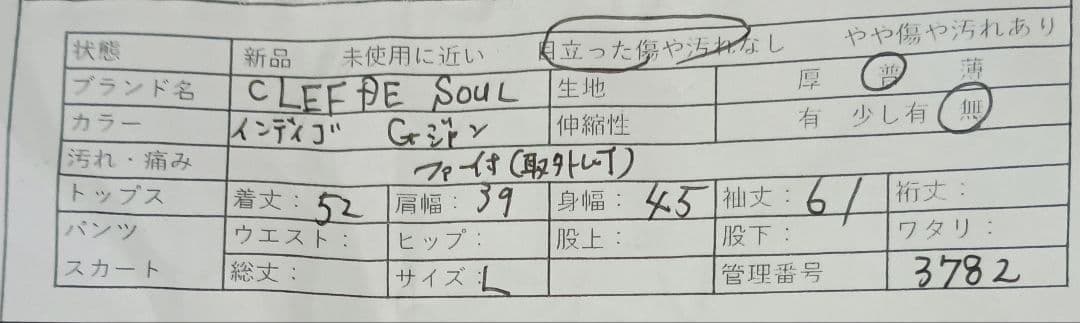 状態 新品 未使用に近い 目立った傷や汚れなし やや傷や汚れあり
ブランド名 CLEF DE SOUL 生地 厚 普 薄
カラー インディゴ Gジャン 伸縮性 有 少し有 無
汚れ・痛み ファー付(取外し可)
トップス 着丈: 52 肩幅: 39 身幅: 45 袖丈: 61 裄丈:
パンツ ウエスト: ヒップ: 股上: 股下: ワタリ:
スカート 総丈: サイズ: L 管理番号 3782